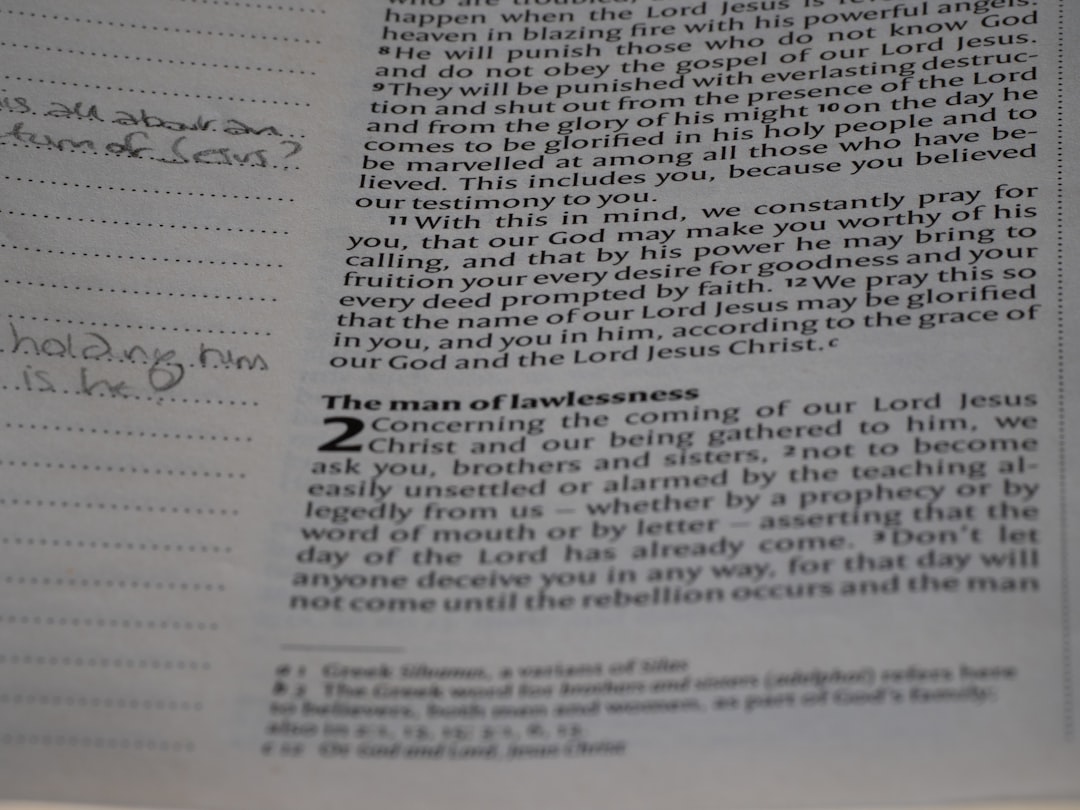 is all about an
turn of Jesus?
holding him
is he
happen when the Lord Jesus is
heaven in blazing fire with his powerful angels.
8 He will punish those who do not know God
and do not obey the gospel of our Lord Jesus.
9 They will be punished with everlasting destruc-
tion and shut out from the presence of the Lord
and from the glory of his might 10 on the day he
comes to be glorified in his holy people and to
be marvelled at among all those who have be-
lieved. This includes you, because you believed
our testimony to you.
11 With this in mind, we constantly pray for
you, that our God may make you worthy of his
calling, and that by his power he may bring to
fruition your every desire for goodness and your
every deed prompted by faith. 12 We pray this so
that the name of our Lord Jesus may be glorified
in you, and you in him, according to the grace of
our God and the Lord Jesus Christ.c
The man of lawlessness
2 Concerning the coming of our Lord Jesus
Christ and our being gathered to him, we
ask you, brothers and sisters, 2 not to become
easily unsettled or alarmed by the teaching al-
legedly from us – whether by a prophecy or by
word of mouth or by letter – asserting that the
day of the Lord has already come. 3 Don't let
anyone deceive you in any way, for that day will
not come until the rebellion occurs and the man
a 1 Greek Silvanus, a variant of Silas
b 3 The Greek word for brothers and sisters (adelphoi) refers here
to believers, both men and women, as part of God's family;
also in 2:1, 13, 15; 3:1, 6, 13.
c 12 Or God and Lord, Jesus Christ